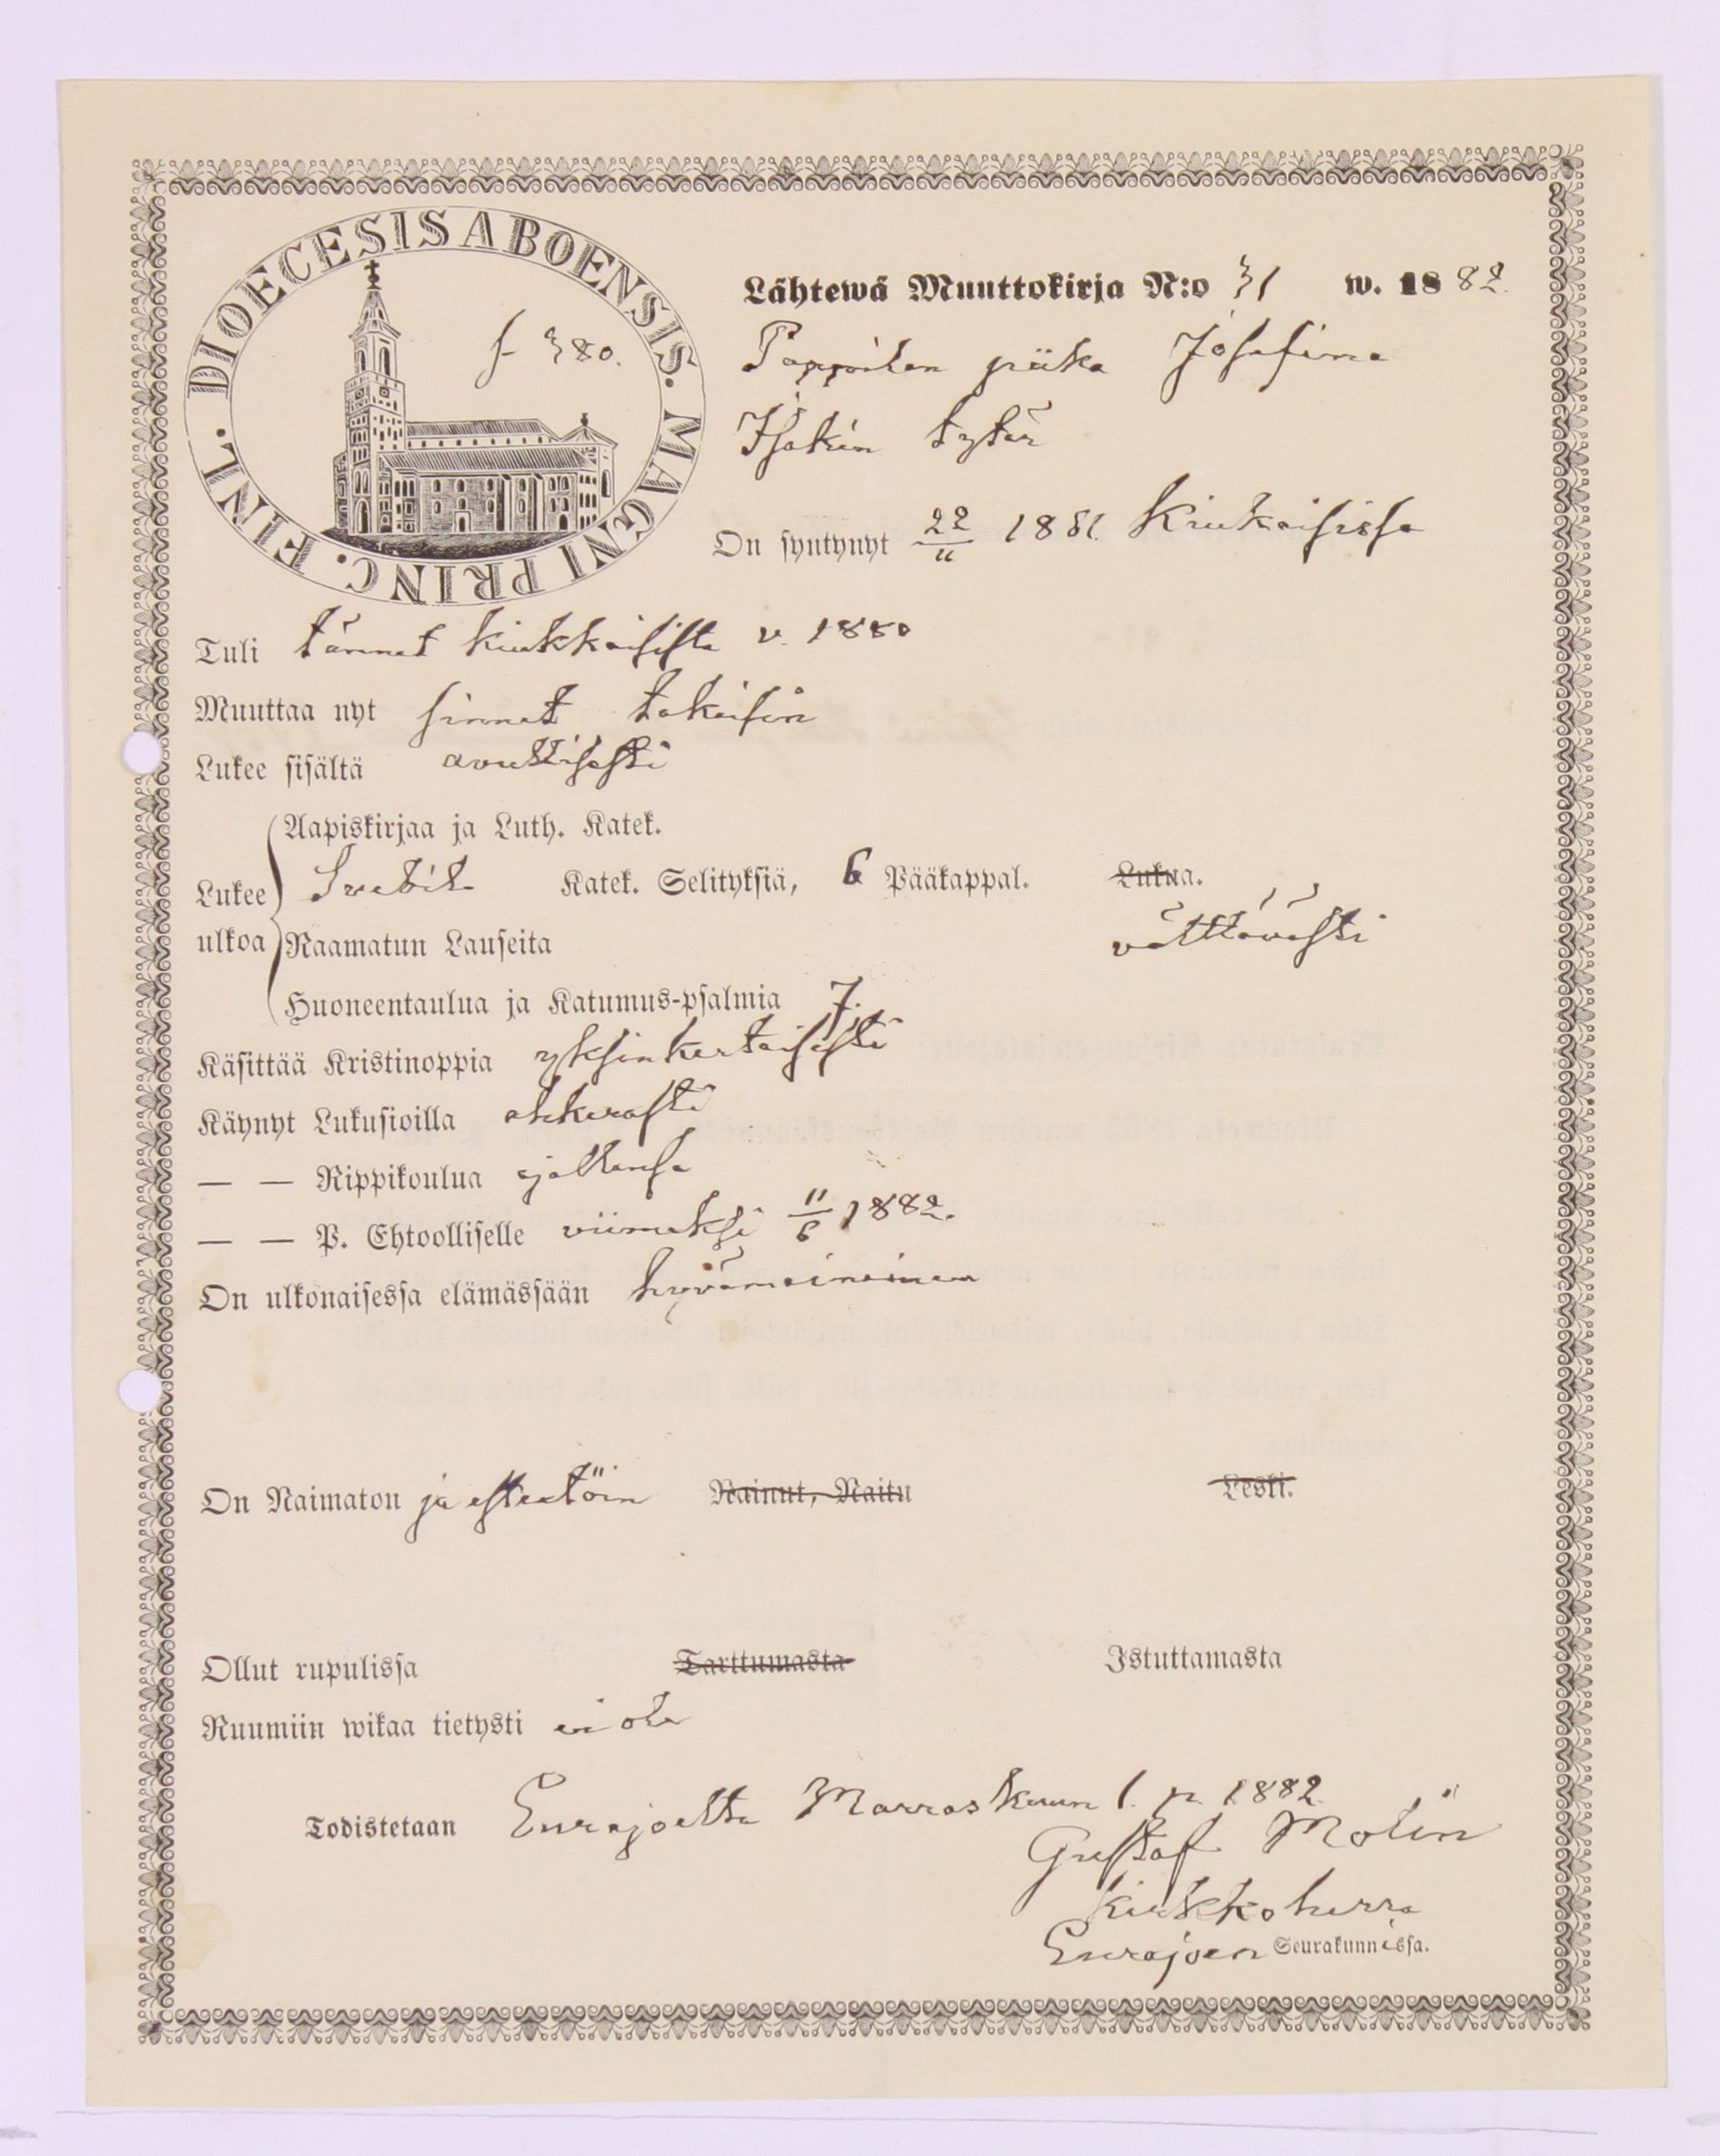 DIOECESIS ABOENSIS. MAGNI PRINC. FINL.
f 380.
Lähtewä Muuttokirja N:o 31 w. 1882.
Pappilan piika Josefina
Isakin tytär
On syntynyt 22/11 1851. Kiukaisissa
Tuli tännet kiukkaisista v. 1880
Muuttaa nyt sinnet takaisin
Lukee sisältä avuttisesti
Aapiskirjaa ja Luth. Katek.
Lukee ulkoa
Svebil. Katek. Selityksiä, 6 Pääkappal. Lukua.
Raamatun Lauseita välttävästi
Huoneentaulua ja Katumus-psalmia 7.
Käsittää Kristinoppia yksinkertaisesti
Käynyt Lukusioilla ahkerasti
— — Rippikoulua ajallansa
— — P. Ehtoolliselle viimeksi 11/6 1882.
On ulkonaisessa elämässään hyvämaineinen
On Naimaton ja esteetöin Nainut, Naitu Leski.
Ollut rupulissa Tarttumasta Istuttamasta
Ruumiin wikaa tietysti ei ole
Todistetaan Eurajoelta Marraskuun 1. p. 1882.
Gustaf Molin
kirkkoherra
Eurajoen Seurakunnissa.